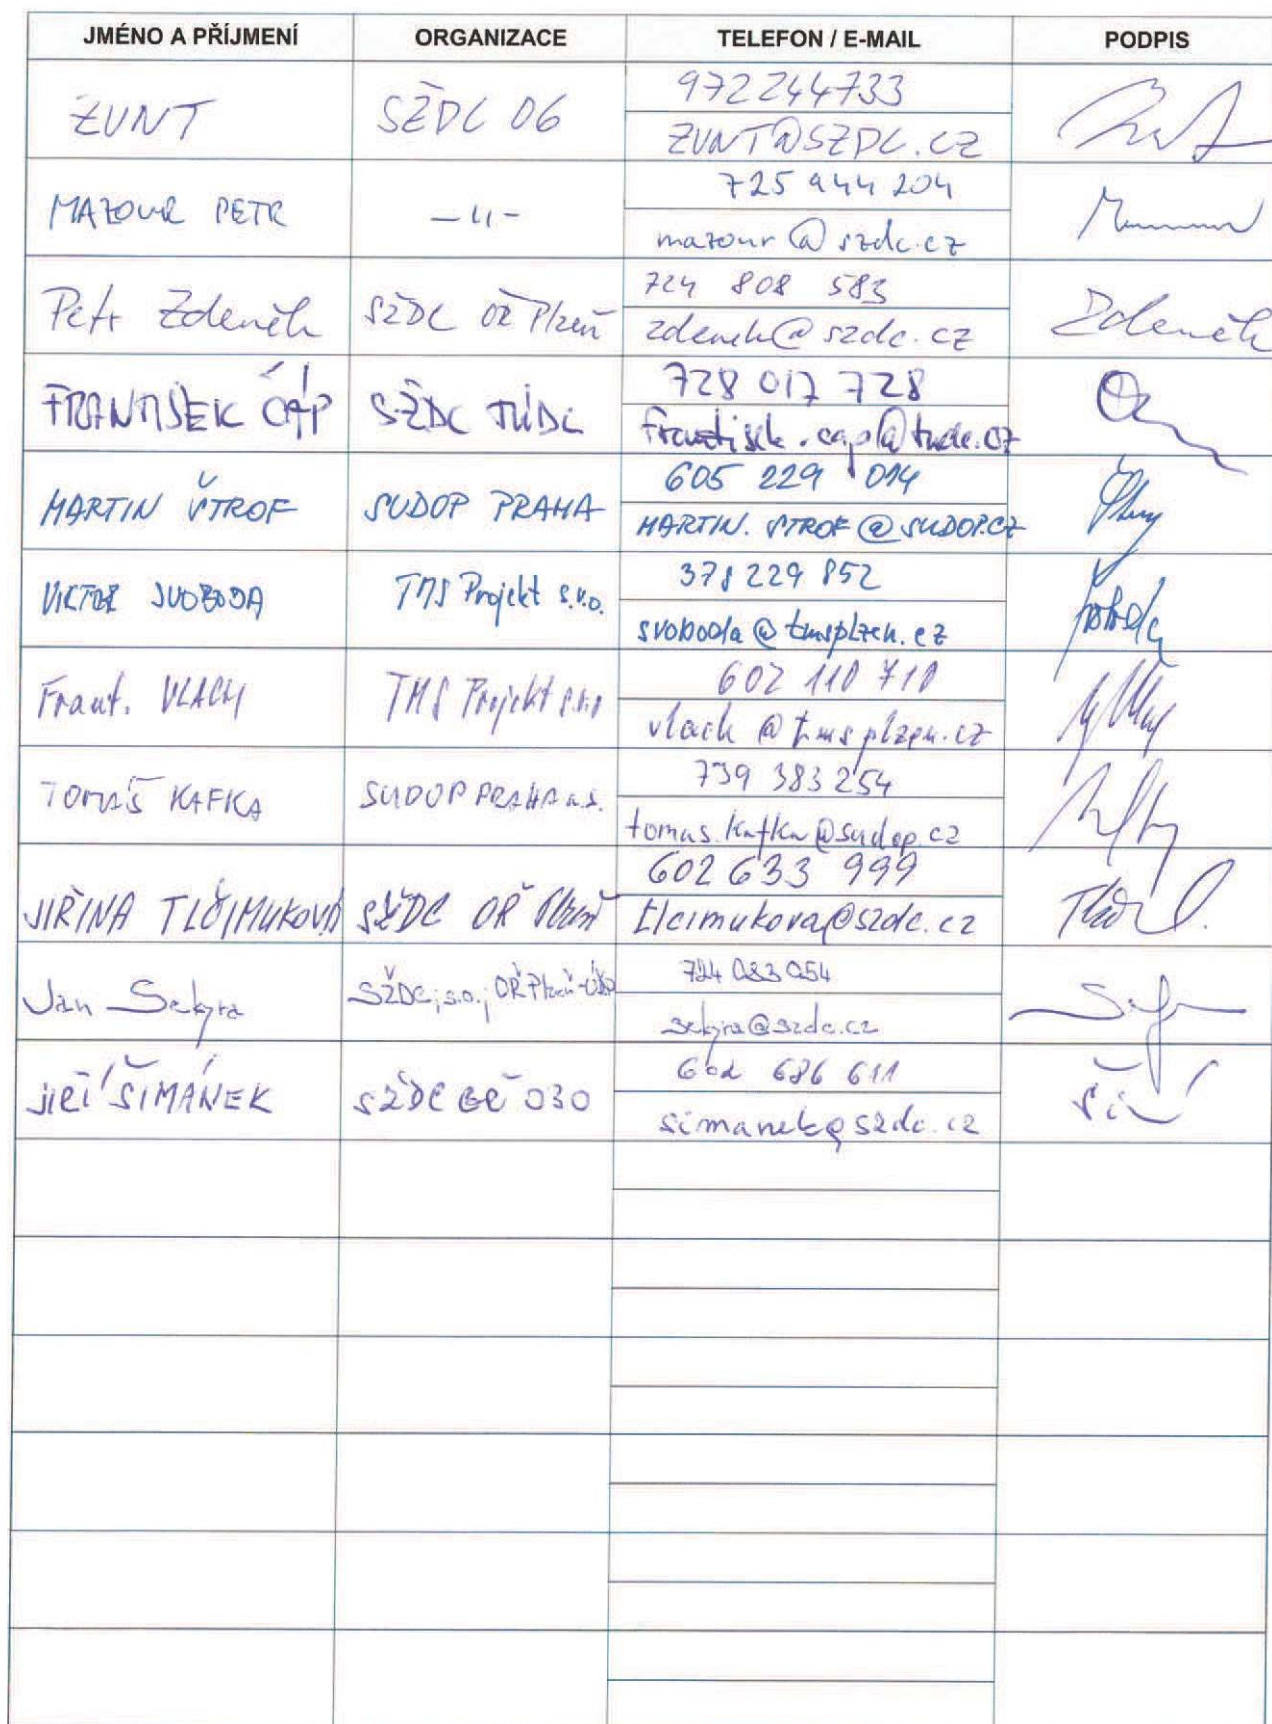 JMÉNO A PŘÍJMENÍ ORGANIZACE TELEFON / E-MAIL PODPIS
ŽUNT SŽDC O6 972244733
ZUNT@SZDC.CZ
MAZOUR PETR —11- 725 944 204
mazour@szdc.cz
Petr Zdeněk SŽDC OŘ Plzeň 724 808 583
zdenek@szdc.cz Zdeněk
FRANTIŠEK ČÁP SŽDC TÚDC 728 017 728
frantisek.cap@tudc.cz
MARTIN ŠTROF SUDOP PRAHA 605 229 014
MARTIN.STROF@SUDOP.CZ
VIKTOR SVOBODA TMS Projekt s.r.o. 378 229 852
svoboda@tmsplzen.cz
Frant. VLACH TMS Projekt s.r.o 602 110 710
vlach@tmsplzen.cz
TOMÁŠ KAFKA SUDOP PRAHA a.s. 739 383 254
tomas.kafka@sudop.cz
JIŘINA TLČIMUKOVÁ SŽDC OŘ Plzeň 602 633 999
tlcimukova@szdc.cz
Jan Sekyra SŽDC, s.o., OŘ Plzeň 724 083 054
sekyra@szdc.cz
JIŘÍ ŠIMÁNEK SŽDC GŘ O30 602 686 611
simanek@szdc.cz